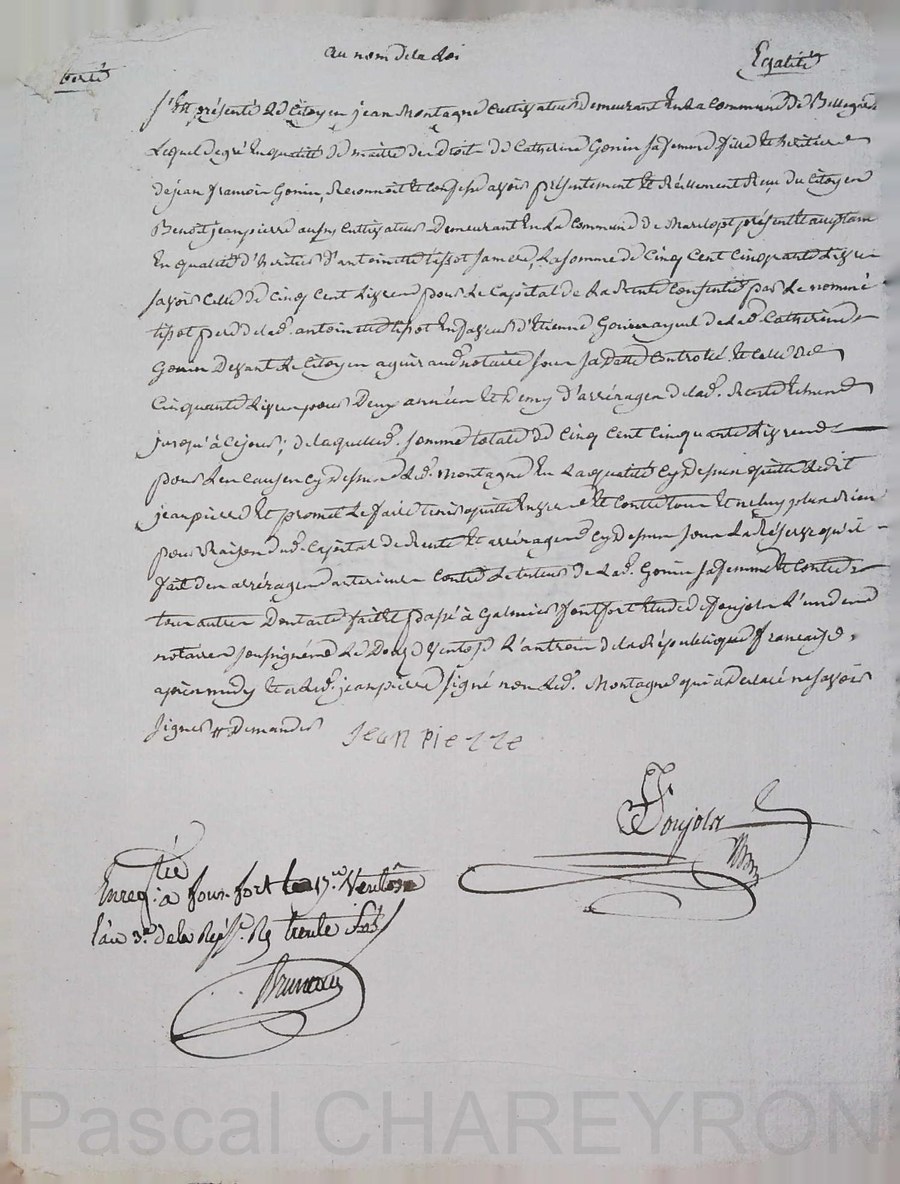 au nom de la Loi
berté
Egalité
S'Est présenté Le Citoyen jean Montagne Cultivateur demeurant En La Commune De Bellegarde
Lequel de gré En qualité De maitre des Droits De Catherine Gonin Sa femme fille Et heritiere
de jean francois Gonin, Reconnoit Et Confesse avoir présentement Et Réellement Reçu du Citoyen
Benoit jeanpierre aussy Cultivateur Demeurant En La Commune De présent Et acceptant
En qualité d'heritier d'antoinette tissot Sa mere, La Somme De Cinq Cent Cinquante Livres
Savoir Celle De Cinq Cent Livres pour Le Capital de La Rente Consentie par Le nommé
tissot pere de lad. antoinette tissot En faveur d'Etienne Gonin ayeul de lad. Catherine
Gonin Devant Le Citoyen notaire Sous Sa Datte Controlé Et Celle De
Cinquante Livres pour Deux années Et Demy d'arrérages de lad. Rente Echus
jusqu'à Ce jour; de laquelle d. Somme totale De Cinq Cent Cinquante Livres
pour Les Causes Cy dessus Led. Montagne En La qualité Cy dessus quitte Ledit
jeanpierre Et promet Le faire tenir quitte Envers Et Contre tous Et ne luy plus Rien
pour Raison dud. Capital de Rente Et arrérages Cy dessus Sous La Réserve qu'il
fait des arrérages anterieurs Contre Le tuteur de Lad. Gonin Sa femme Et Contre
tous autres Dont acte fait Et passé à Galmier fontfort Etude de Poujola L'un des
notaires Soussignés Le Douze Ventose L'an trois de la République française,
après midy Et a Led. jeanpierre Signé non Led. Montagne qui a Déclaré ne Savoir
Signer .. Demandes
jean pierre
Poujola
Enreg.tré a fonfort le 17.e Ventose
l'an 3.e de la Rép. R trente Sols
Bruneau
Pascal CHAREYRON